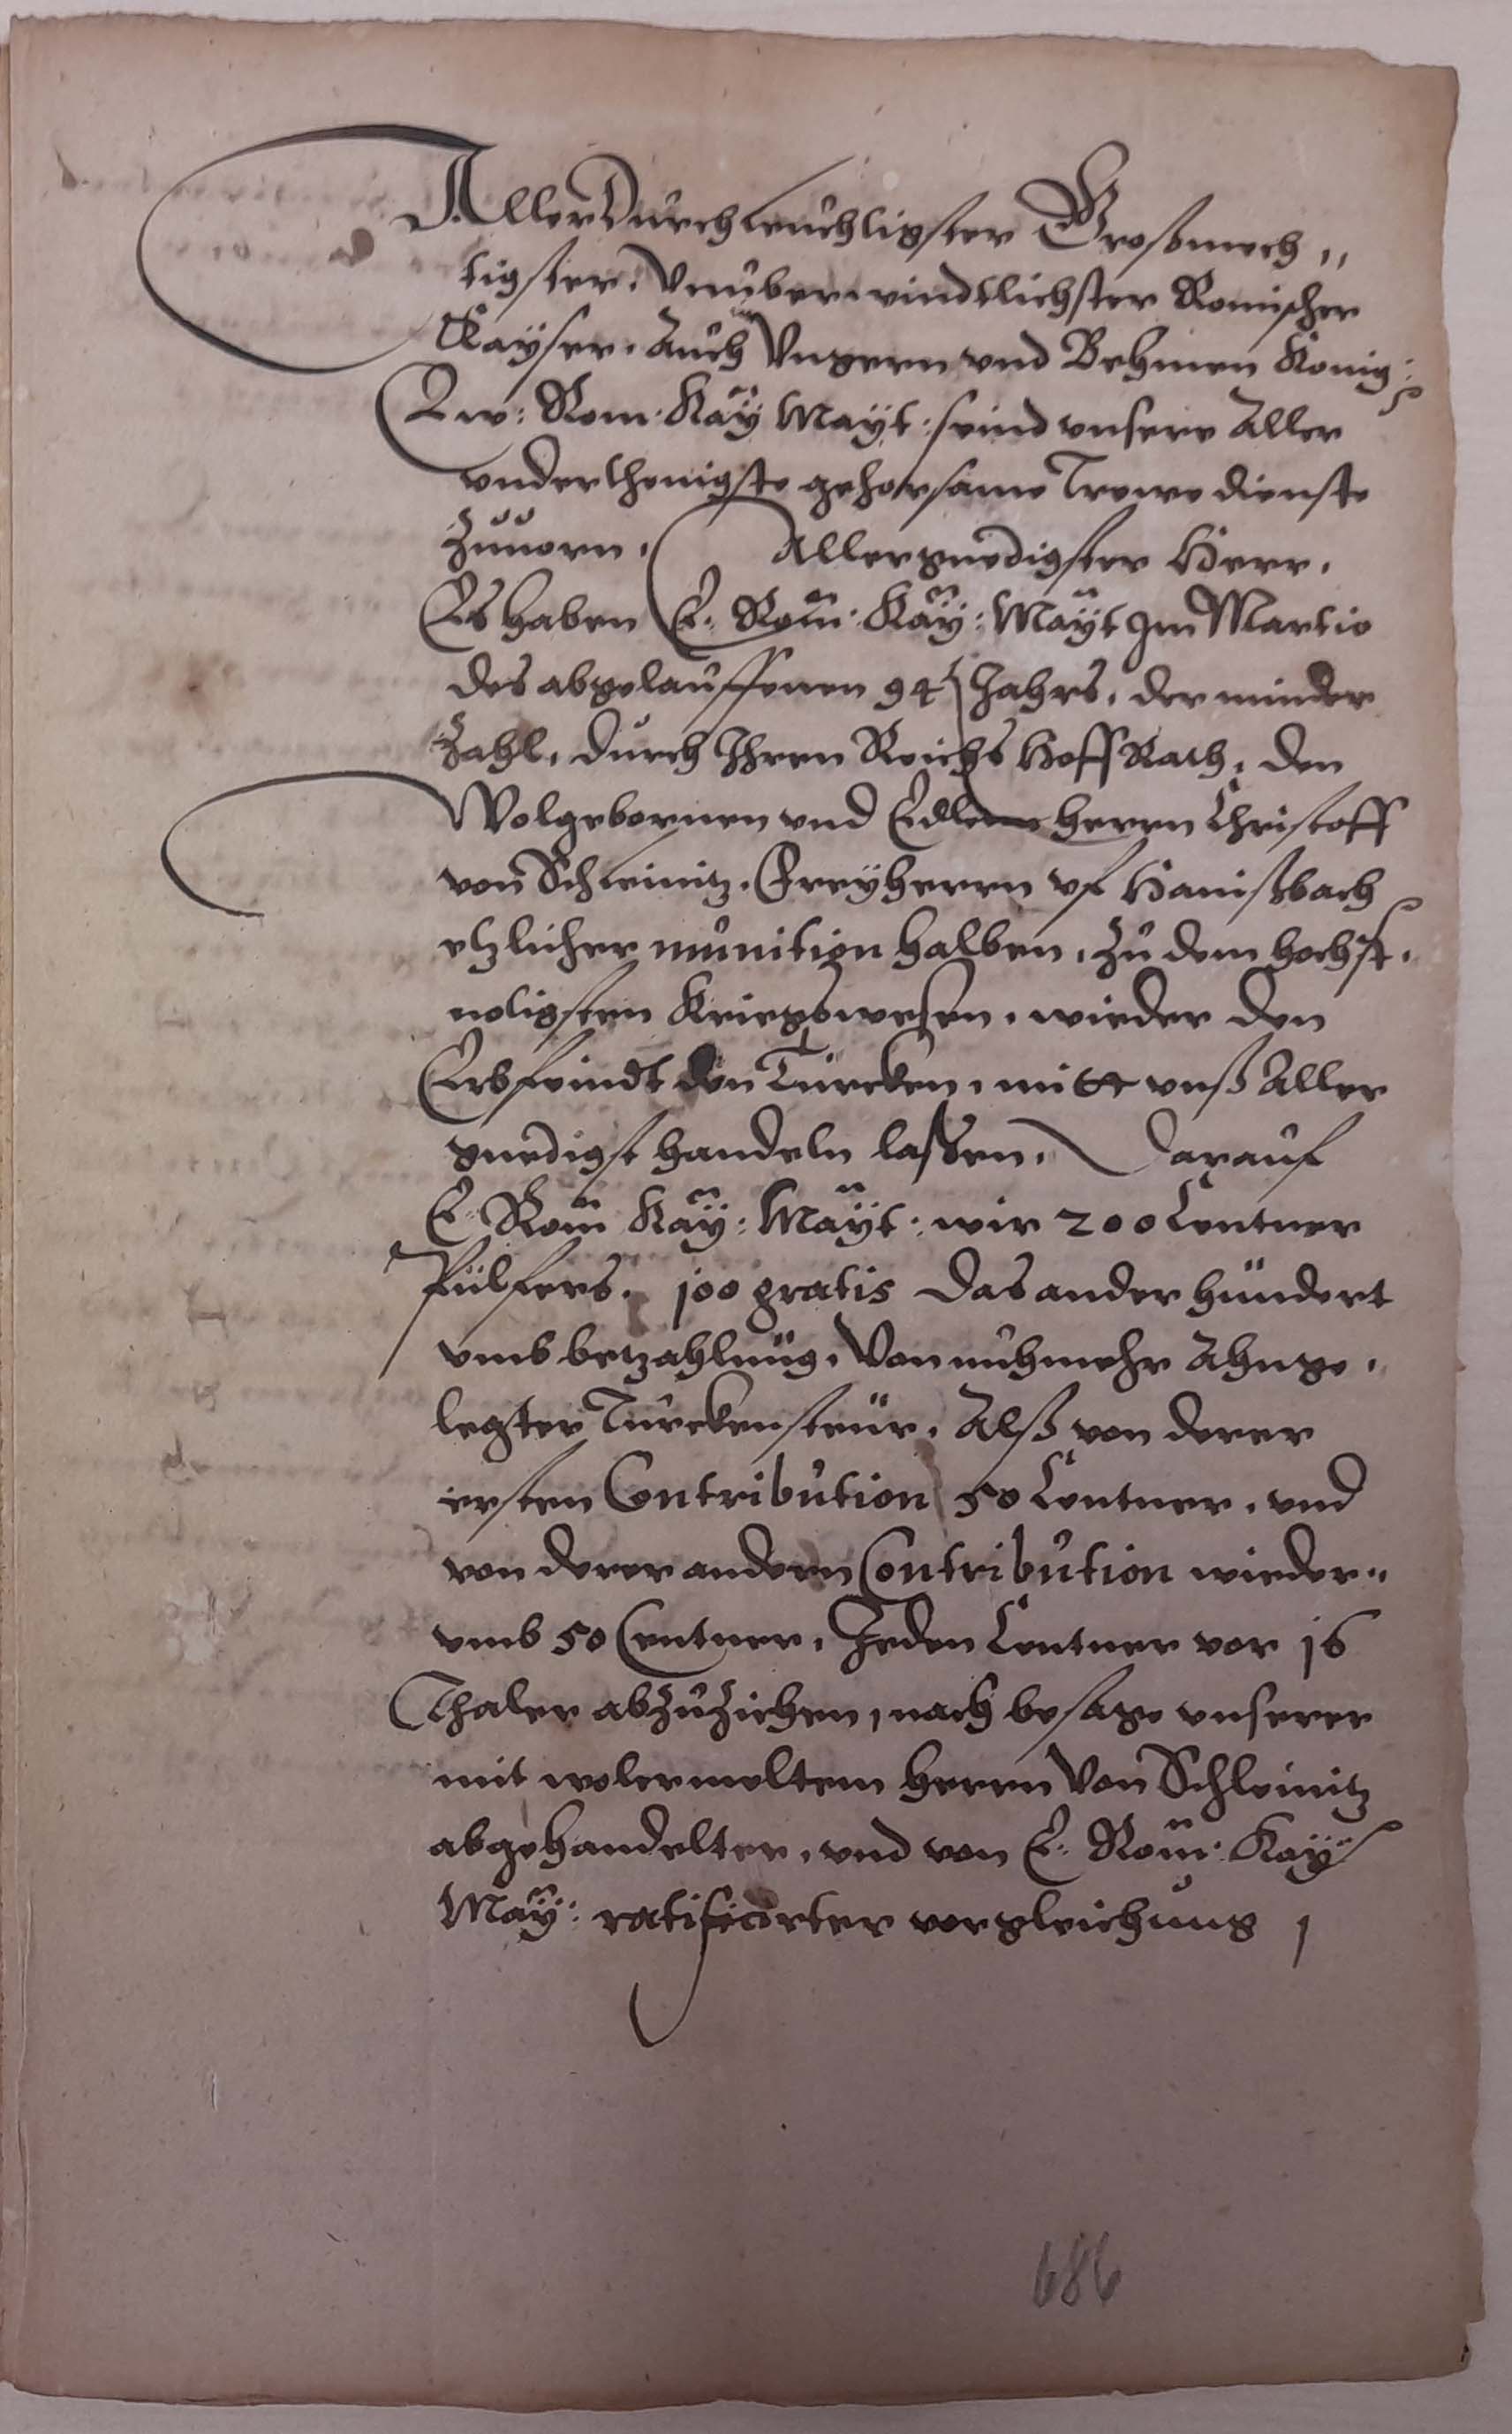 AllerDurchleuchtigster Großmech"
tigster, Vnüberwindtlichster Romischer
Kayser, Auch Vngern vnd Behmen König:
Ew: Rom: Kaÿ Maÿt: seind vnsere Aller
vnderthenigste gehorsame Trewe dienste
Zuuorn. Allergnedigster Herr.
Es haben E: Rom: Kaÿ: Maÿt Im Martio
des abgelauffenen 94 Jahrs, der minder
Zahl, durch Ihren Reichs HoffRath, den
Wolgebornen vnd Edlenn Herrn Christoff
von Schleinitz, Freÿherrn vf Hanißbach
etzlicher munition halben, Zu dem hochst.
notigsten Kriegswesen, wieder den
Erbfeindt den Türcken, mitt vnß Aller
gnedigst handeln laßen, Darauf
E: Rom Kaÿ: Maÿt: wir 200 Centner
Pulfers, 100 gratis Das ander hundert
vmb betzahlung, Von nuhmehr Ahnge,
legter Türckensteur, Alß von derer
ersten Contribution 50 Centner, vnd
von derer andern Contribution wieder"
vmb 50 Centner, Jeden Centner vor 16
Thaler abZuZiehen, nach besage vnserer
mit wolermeltem Herrn Von Schleinitz
abgehandelter, vnd von E: Rom: Kaÿ
Maÿ: ratificirter vorgleichung
686